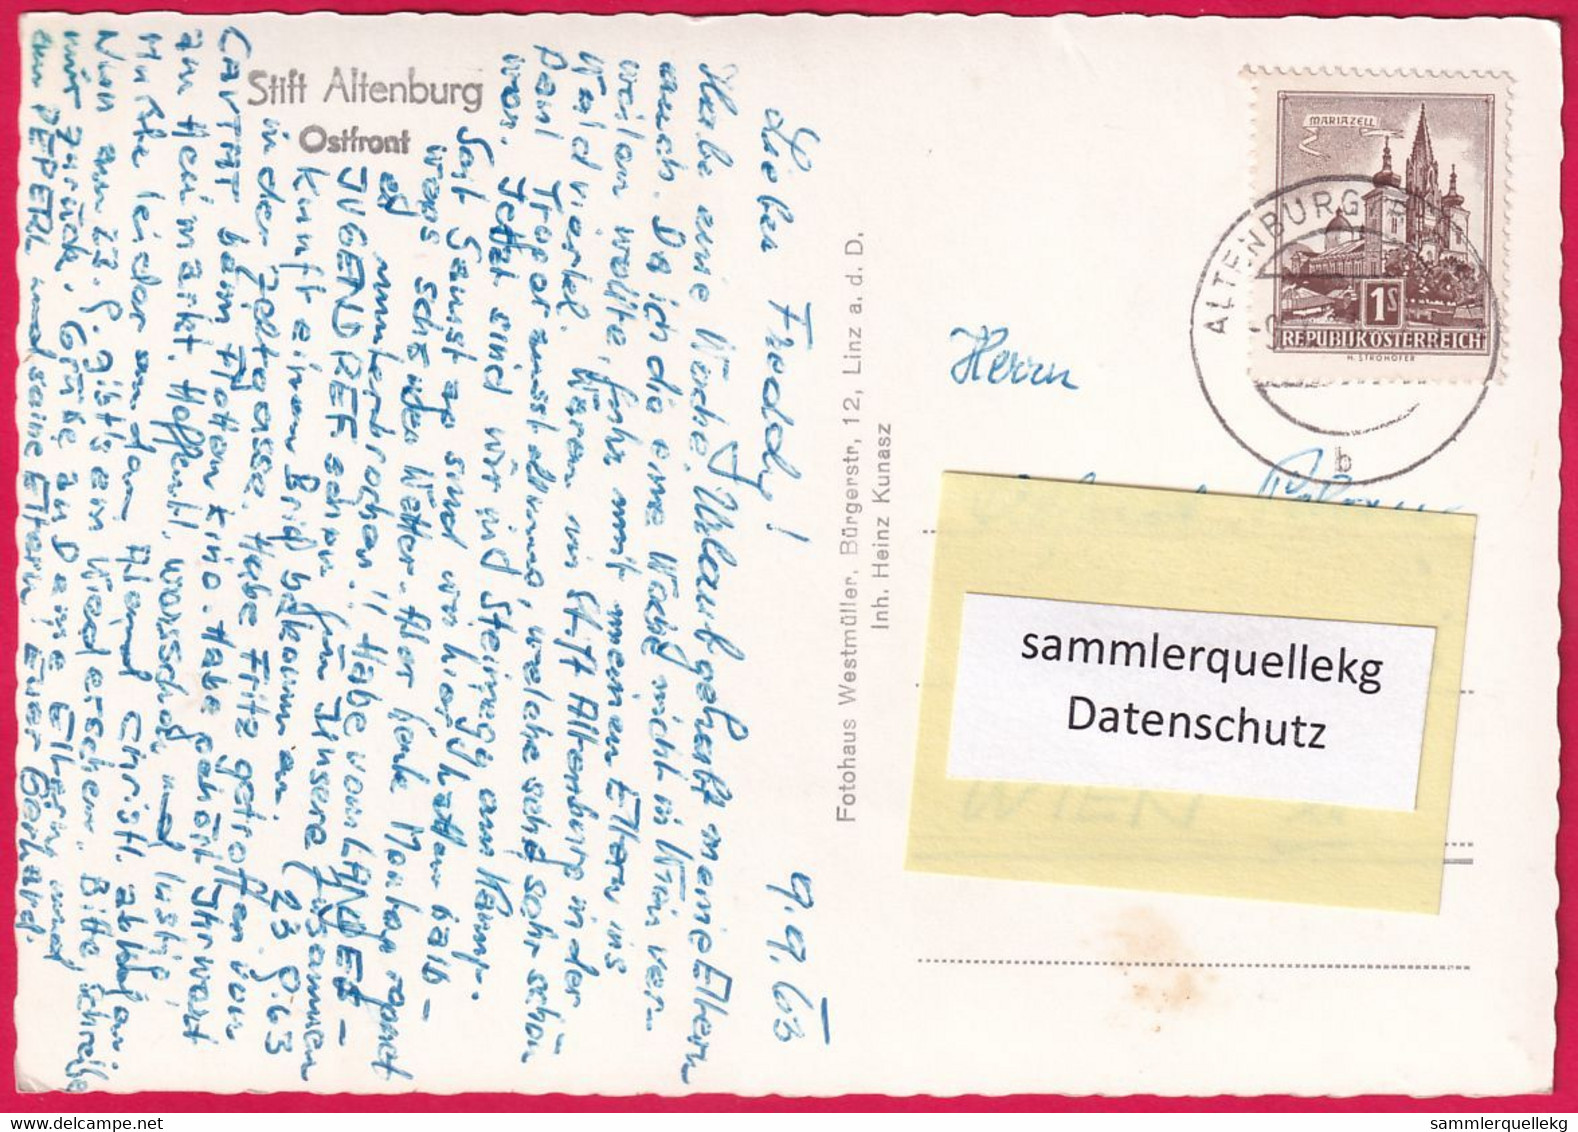 Stift Altenburg
Ostfront
9.9.63
Lieber Freddy!
Habe eine Woche Urlaub gehabt meine Eltern
auch. Da ich die eine Woche nicht in Wien ver-
weilen wollte, fuhr mit meinen Eltern ins
Waldviertel. Waren in Stift Altenburg in der
Paul Troger ausstellung, welche sehr sehr schön
war. Jetzt sind wir in Steinegg am Kamp.
Seit Samst ap sind wir hier, hatten bald-
wegs schönes Wetter. Aber heute Montag regnet
es ununterbrochen!! Habe vom LANDES-
JUGENDREF schon für Unsere Zusammen
kunft einen Brief bekommen (23.9.63
in der Zeltgasse. Habe Fritz getroffen vom
CARTHAT beim Flottenkino. Habe gehört Ihr wart
am Heumarkt. Hoffentl. war schön und lustig
Mußte leider an dem Abend
Nun am 23.9. gibt's ein Wiedersehen. Bitte schreibe
mir zurück. Grüße an Deine Eltern und
am PEPERL und seine Eltern! Euer Gerhard.
Fotohaus Westmüller, Bürgerstr. 12, Linz a. d. D.
Inh. Heinz Kunasz
MARIAZELL
1S
REPUBLIK ÖSTERREICH
H. STROHOFER
ALTENBURG
b
Herrn
WIEN
sammlerquellekg
Datenschutz
sammlerquellekg.delcampe.net